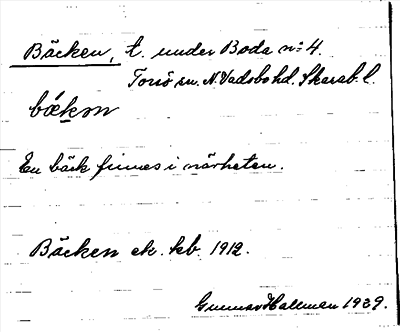 Bäcken, t. under Boda nr 4.
Torsö sn. N. Vadsbo hd. Skarab. l.
bæ̀kɷn
En bäck finnes i närheten.
Bäcken ek. kb. 1912.
Gunnar Hallman 1939.